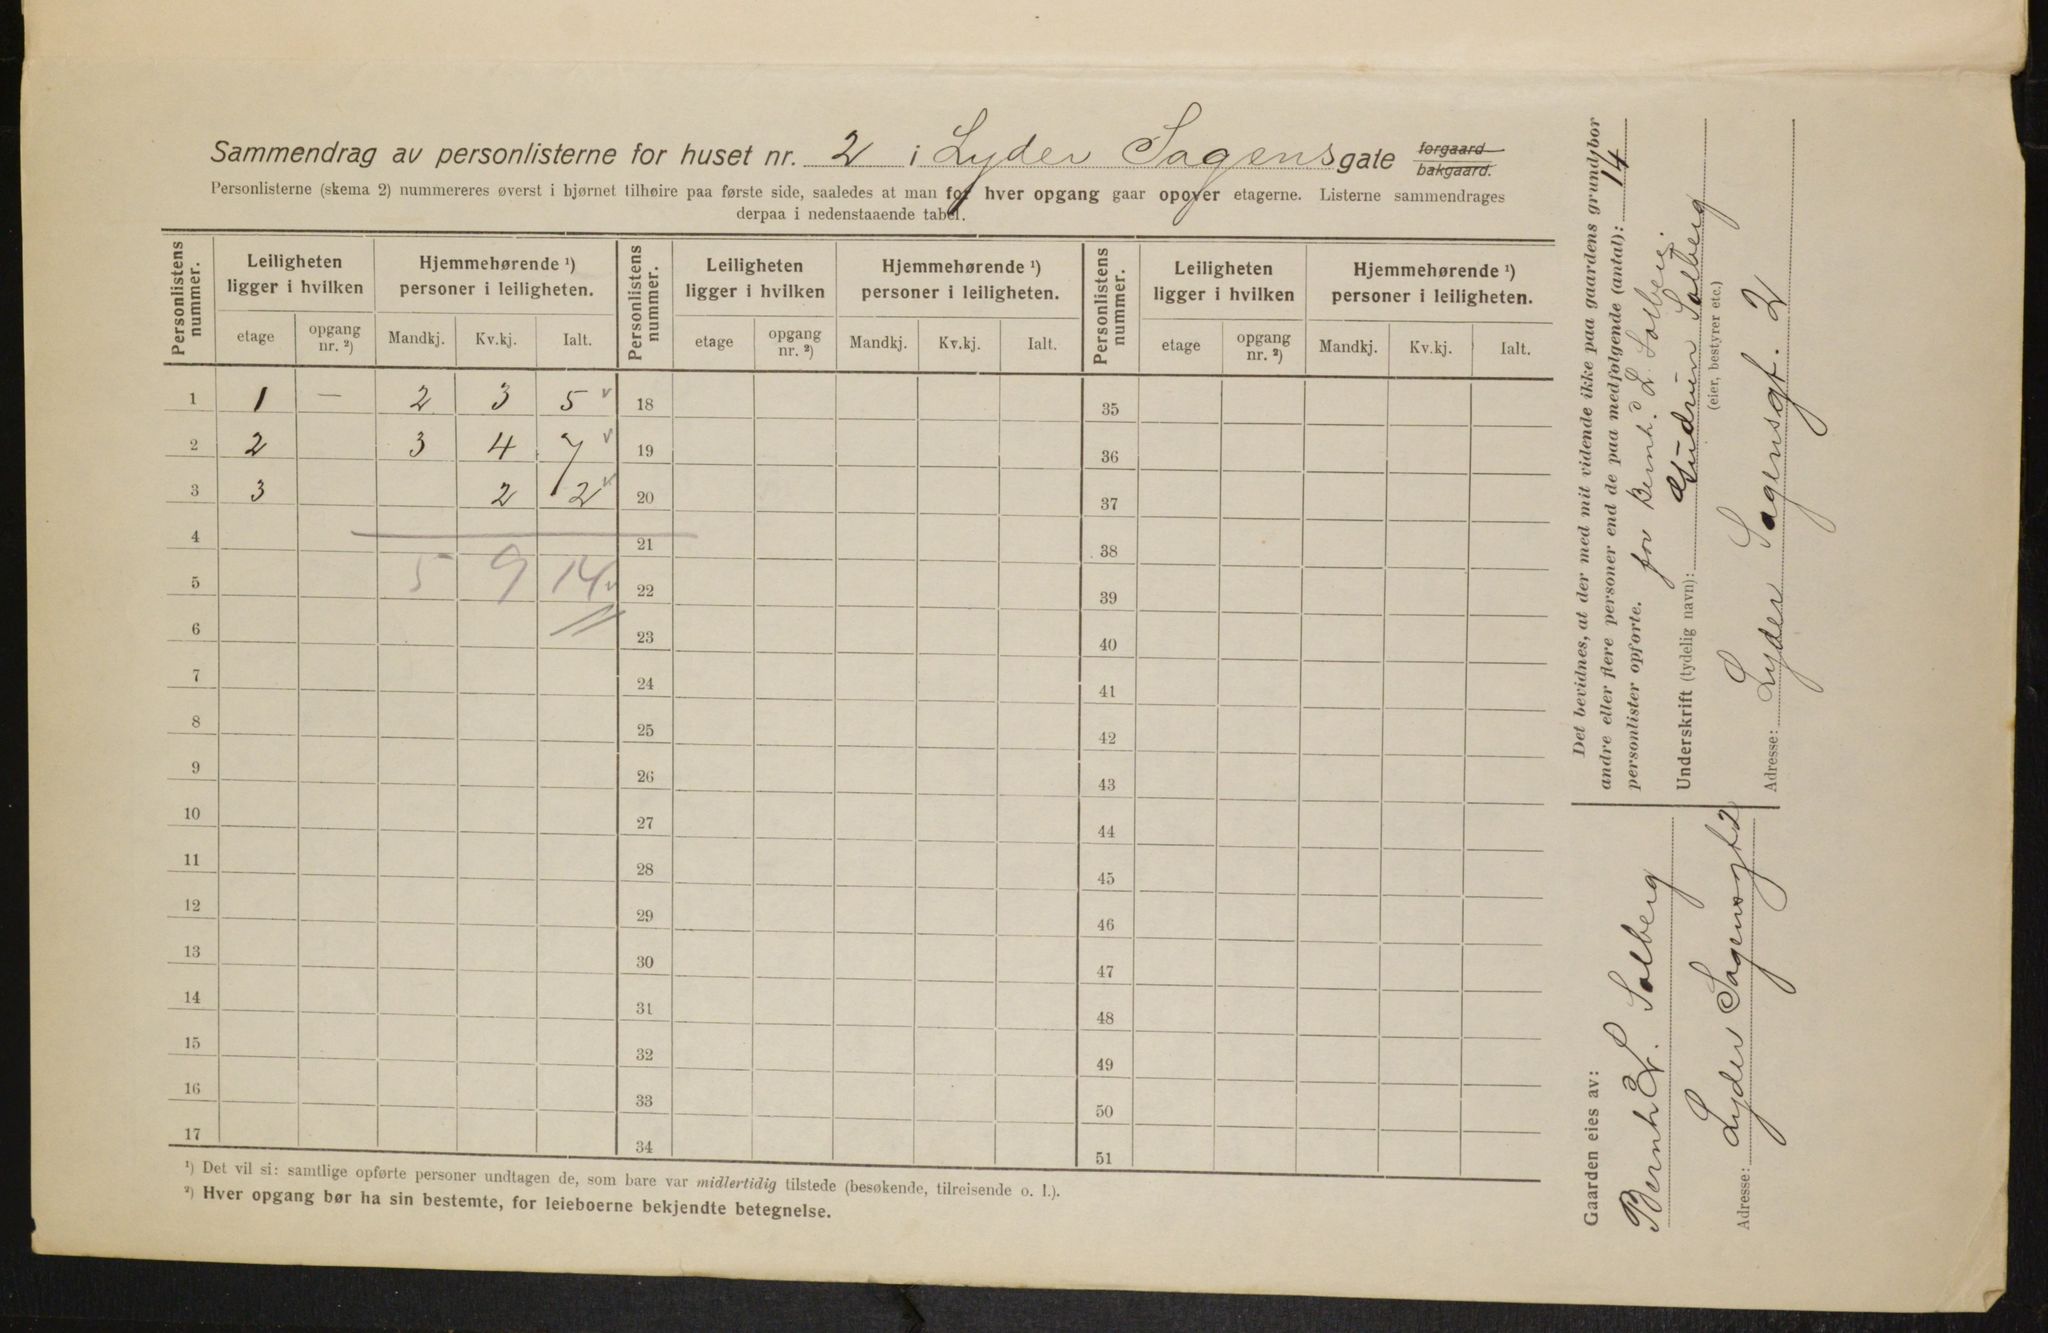 Sammendrag av personlisterne for huset nr. 2 i Lyder Sagens gate forgaard bakgaard.
Personlisterne (skema 2) nummereres øverst i hjørnet tilhøire paa første side, saaledes at man for hver opgang gaar opover etagerne. Listerne sammendrages
derpaa i nedenstaaende tabel.
Personlistens nummer. Leiligheten ligger i hvilken Hjemmehørende ¹) personer i leiligheten. Personlistens nummer. Leiligheten ligger i hvilken Hjemmehørende ¹) personer i leiligheten. Personlistens nummer. Leiligheten ligger i hvilken Hjemmehørende ¹) personer i leiligheten.
etage opgang nr. ²) Mandkj. Kv.kj. Ialt. etage opgang nr. ²) Mandkj. Kv.kj. Ialt. etage opgang nr. ²) Mandkj. Kv.kj. Ialt.
1 1 — 2 3 5 v 18 35
2 2 3 4 7 v 19 36
3 3 2 2 v 20 37
4 21 38
5 5 9 14 v 22 39
6 23 40
7 24 41
8 25 42
9 26 43
10 27 44
11 28 45
12 29 46
13 30 47
14 31 48
15 32 49
16 33 50
17 34 51
¹) Det vil si: samtlige opførte personer undtagen de, som bare var midlertidig tilstede (besøkende, tilreisende o. l.).
²) Hver opgang bør ha sin bestemte, for leieboerne bekjendte betegnelse.
Det bevidnes, at der med mit vidende ikke paa gaardens grund bor
andre eller flere personer end de paa medfølgende (antal): 14
personlister opførte. for Bernh. L. Solberg.
Underskrift (tydelig navn): Solberg
(eier, bestyrer etc.)
Adresse: Lyder Sagensgt. 2
Gaarden eies av:
Bernh L. Solberg
Adresse: Lyder Sagensgt 2